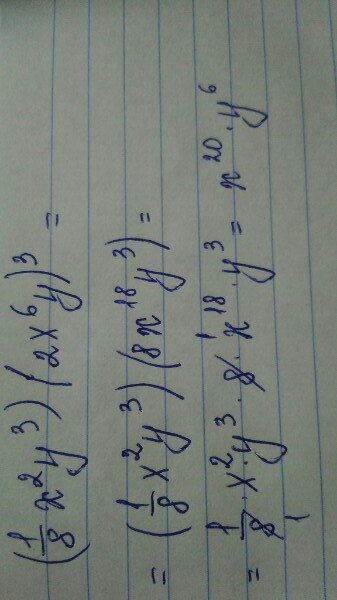 (1/8 x²y³)(2x⁶y)³ =
= (1/8 x²y³)(8x¹⁸y³) =
= 1/8 · x² · y³ · 8 · x¹⁸ · y³ = x²⁰ · y⁶